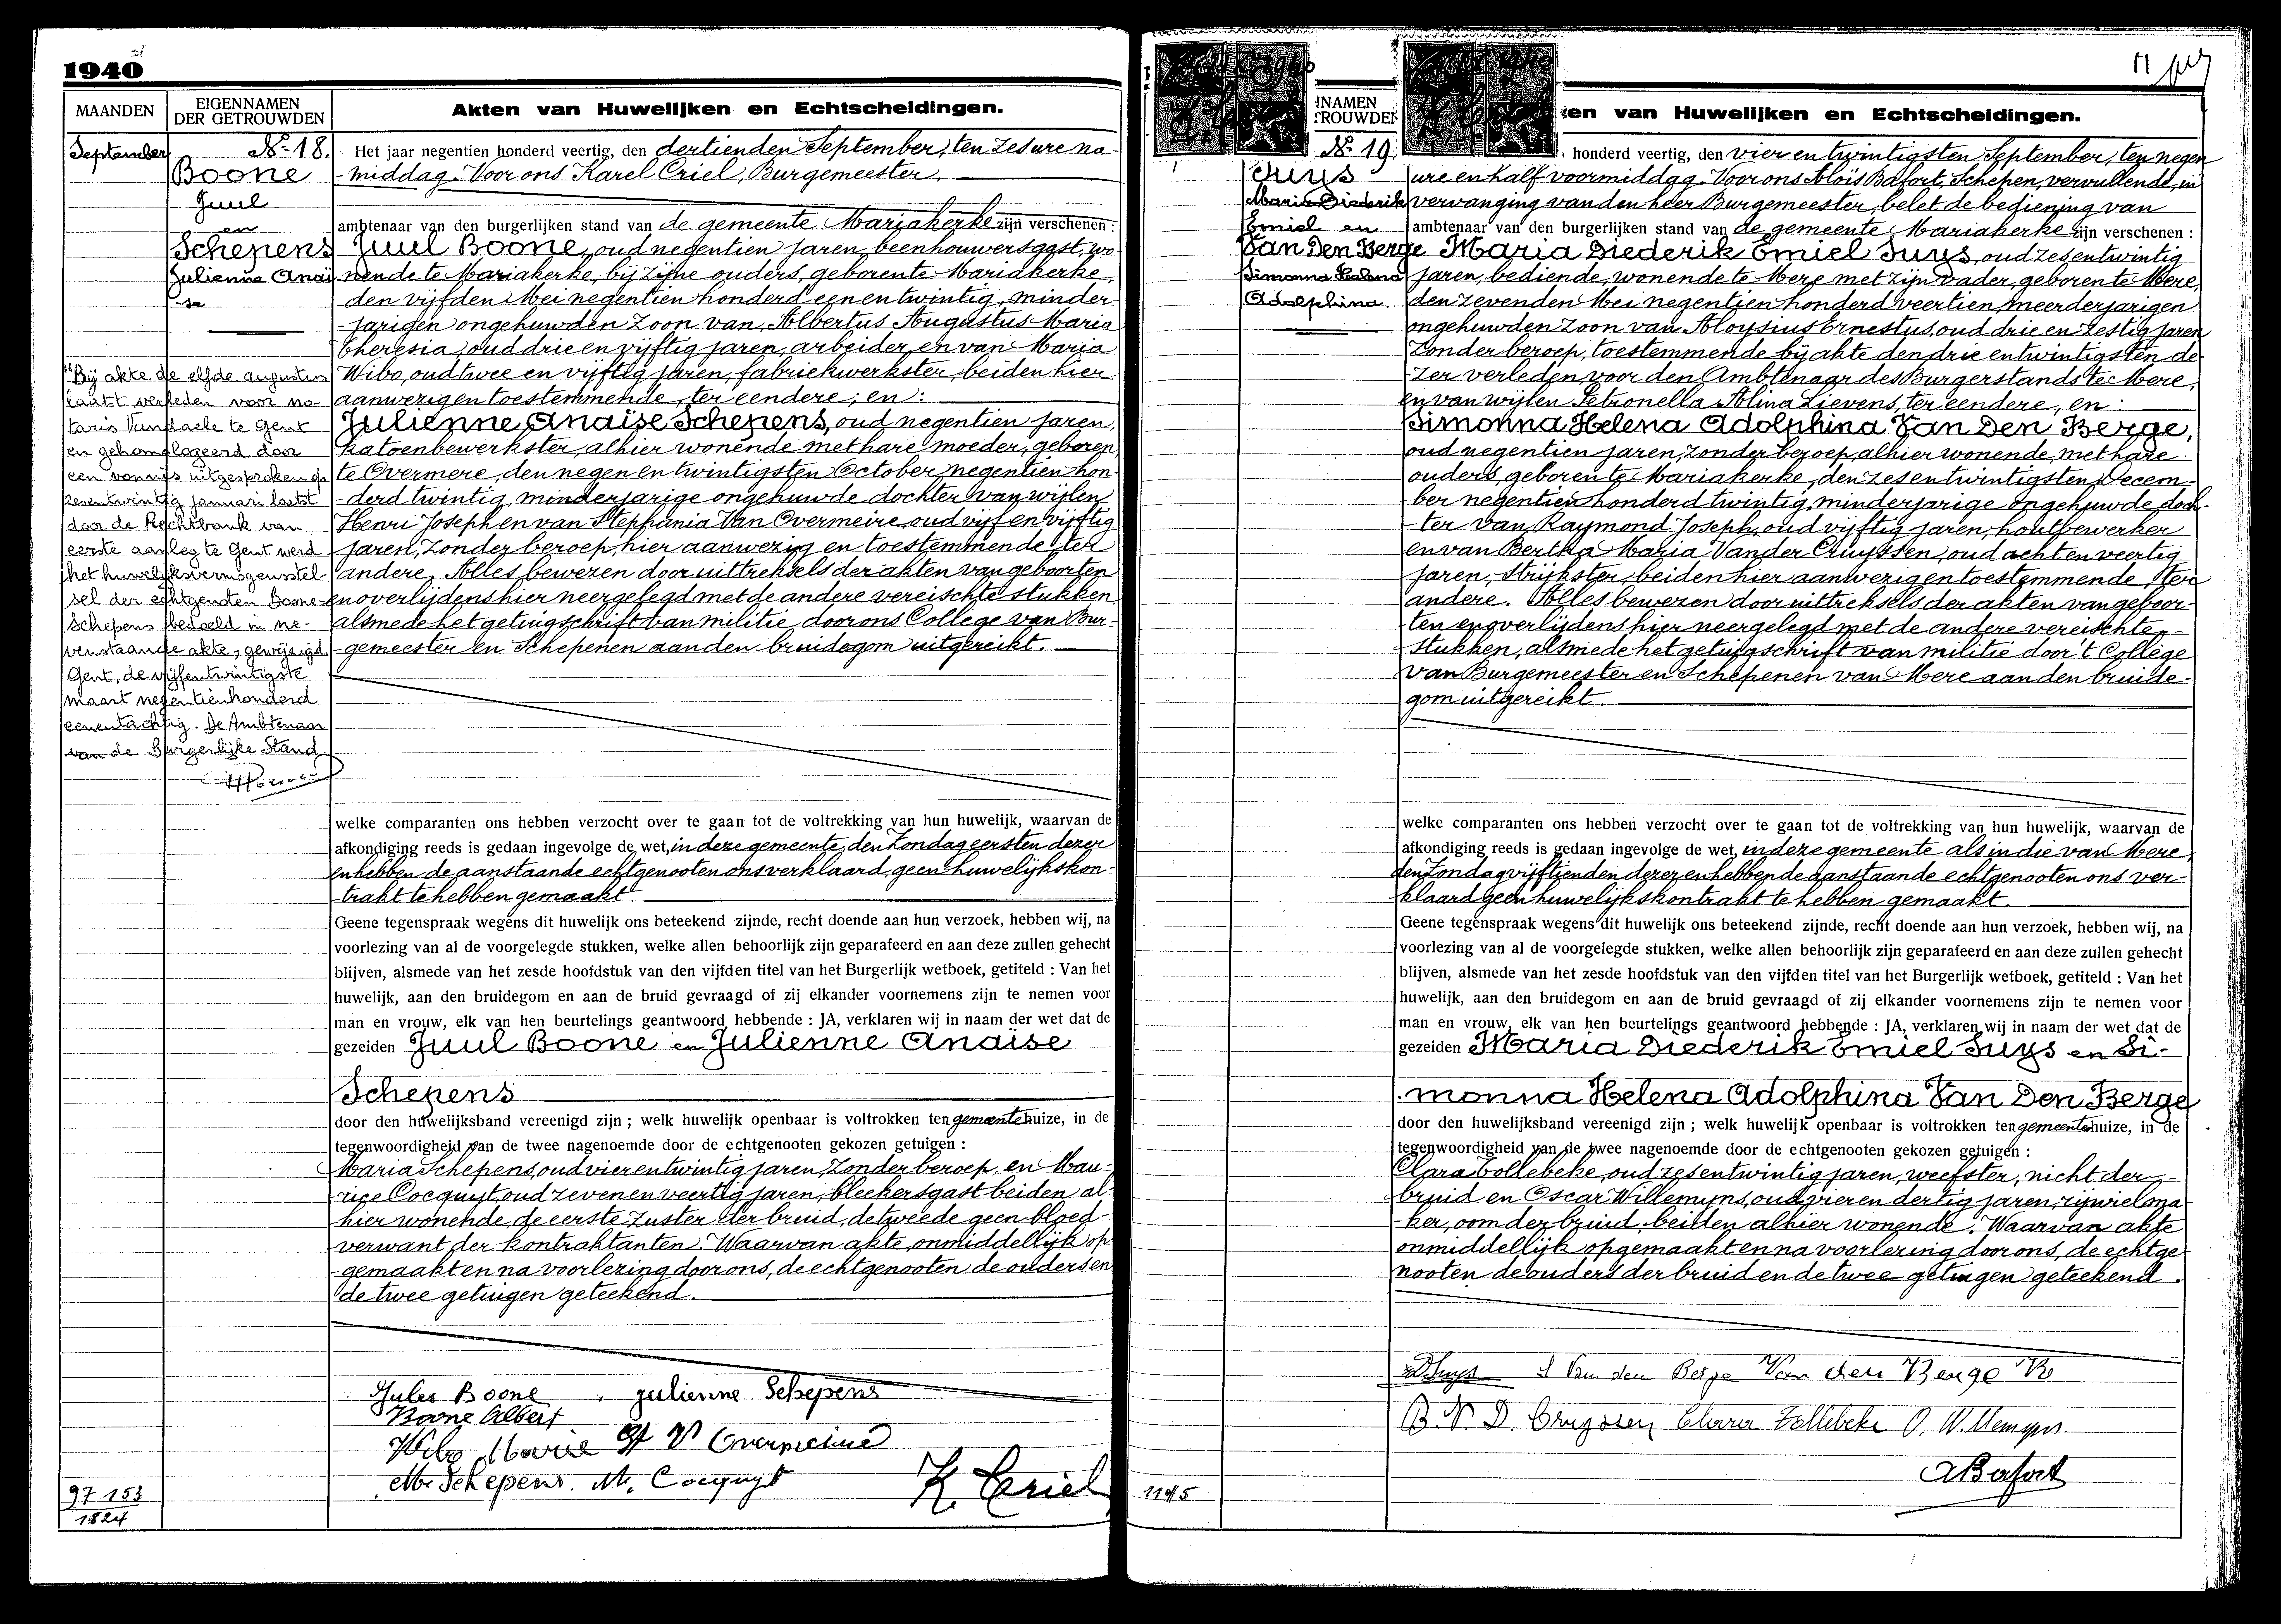 1940
MAANDEN
EIGENNAMEN
DER GETROUWDEN
Akten van Huwelijken en Echtscheidingen.
September
No 18.
Boone
Juul
en
Schepens
Julienne Anaï-
se
Het jaar negentien honderd veertig, den dertienden September, ten zes ure na-
middag. Voor ons Karel Criel, Burgemeester,
ambtenaar van den burgerlijken stand van de gemeente Mariakerke zijn verschenen :
Juul Boone, oud negentien jaren, beenhouwersgast, wo-
nende te Mariakerke, bij zijne ouders, geboren te Mariakerke,
den vijfden Mei negentien honderd een en twintig, minder-
jarigen ongehuwden zoon van Albertus Augustus Maria
Theresia, oud drie en vijftig jaren, arbeider, en van Maria
Wibo, oud twee en vijftig jaren, fabriekwerkster, beiden hier
aanwezig en toestemmende, ter eendere; en :
Julienne Anaïse Schepens, oud negentien jaren,
katoenbewerkster, alhier wonende met hare moeder, geboren
te Overmere, den negen en twintigsten October negentien hon-
derd twintig, minderjarige ongehuwde dochter van wijlen
Henri Joseph en van Stephania Van Overmeire, oud vijf en vijftig
jaren, zonder beroep, hier aanwezig en toestemmende, ter
andere. Alles bewezen door uittreksels der akten van geboorten
en overlijdens hier neergelegd met de andere vereischte stukken
alsmede het getuigschrift van militie door ons College van Bur-
gemeester en Schepenen aan den bruidegom uitgereikt.
Bij akte de elfde augustus
laatst verleden voor no-
taris Vanstaele te Gent
en gehomologeerd door
een vonnis uitgesproken op
zesentwintig januari laatst
door de Rechtbank van
eerste aanleg te Gent werd
het huwelijksvermogensstel-
sel der echtgenoten Boone-
Schepens bedoeld in ne-
venstaande akte, gewijzigd.
Gent, de vijfentwintigste
maart negentienhonderd
eenentachtig. De Ambtenaar
van de Burgerlijke Stand
welke comparanten ons hebben verzocht over te gaan tot de voltrekking van hun huwelijk, waarvan de
afkondiging reeds is gedaan ingevolge de wet, in deze gemeente, den Zondag eersten dezer
en hebben de aanstaande echtgenooten ons verklaard geen huwelijkskon-
trakt te hebben gemaakt
Geene tegenspraak wegens dit huwelijk ons beteekend zijnde, recht doende aan hun verzoek, hebben wij, na
voorlezing van al de voorgelegde stukken, welke allen behoorlijk zijn geparafeerd en aan deze zullen gehecht
blijven, alsmede van het zesde hoofdstuk van den vijfden titel van het Burgerlijk wetboek, getiteld : Van het
huwelijk, aan den bruidegom en aan de bruid gevraagd of zij elkander voornemens zijn te nemen voor
man en vrouw, elk van hen beurtelings geantwoord hebbende : JA, verklaren wij in naam der wet dat de
gezeiden Juul Boone en Julienne Anaïse
Schepens
door den huwelijksband vereenigd zijn ; welk huwelijk openbaar is voltrokken ten gemeentehuize, in de
tegenwoordigheid van de twee nagenoemde door de echtgenooten gekozen getuigen :
Maria Schepens, oud vier en twintig jaren, zonder beroep, en Mau-
rice Cocquyt, oud zeven en veertig jaren, bleekersgast beiden al-
hier wonende, de eerste zuster der bruid, de tweede geen bloed-
verwant der kontraktanten. Waarvan akte, onmiddellijk op-
gemaakt en na voorlezing door ons, de echtgenooten de ouders en
de twee getuigen geteekend.
Jules Boone julienne Schepens
Boone Albert
Wibo Marie St V Overmeire
M. Schepens. M. Cocquyt
K. Criel
97 153
1824
11
NAMEN
ROUWDEN
en van Huwelijken en Echtscheidingen.
No 19
Suys
Maria Diederik
Emiel en
Van Den Berge
Simonna Helena
Adolphina
honderd veertig, den vier en twintigsten September, ten negen
ure en half voormiddag. Voor ons Aloïs Bafort, Schepen, vervullende, in
vervanging van den heer Burgemeester, belet de bediening van
ambtenaar van den burgerlijken stand van de gemeente Mariakerke zijn verschenen :
Maria Diederik Emiel Suys, oud zes en twintig
jaren, bediende, wonende te Mere met zijn vader, geboren te Mere,
den zevenden Mei negentien honderd veertien, meerderjarigen
ongehuwden zoon van Aloysius Ernestus, oud drie en zestig jaren
zonder beroep, toestemmende bij akte den drie en twintigsten de-
zer verleden voor den Ambtenaar des Burgerstands te Mere,
en van wijlen Petronella Alina Lievens, ter eendere, en :
Simonna Helena Adolphina Van Den Berge,
oud negentien jaren, zonder beroep, alhier wonende, met hare
ouders, geboren te Mariakerke, den zes en twintigsten Decem-
ber negentien honderd twintig, minderjarige ongehuwde doch-
ter van Raymond Joseph, oud vijftig jaren, houtbewerker
en van Bertha Maria Van der Cruyssen, oud acht en veertig
jaren, strijkster, beiden hier aanwezig en toestemmende, ter
andere. Alles bewezen door uittreksels der akten van geboor-
ten en overlijdens hier neergelegd met de andere vereischte
stukken, alsmede het getuigschrift van militie door 't College
van Burgemeester en Schepenen van Mere aan den bruide-
gom uitgereikt.
welke comparanten ons hebben verzocht over te gaan tot de voltrekking van hun huwelijk, waarvan de
afkondiging reeds is gedaan ingevolge de wet, in deze gemeente als in die van Mere,
den Zondag vijftienden dezer en hebben de aanstaande echtgenooten ons ver-
klaard geen huwelijkskontrakt te hebben gemaakt.
Geene tegenspraak wegens dit huwelijk ons beteekend zijnde, recht doende aan hun verzoek, hebben wij, na
voorlezing van al de voorgelegde stukken, welke allen behoorlijk zijn geparafeerd en aan deze zullen gehecht
blijven, alsmede van het zesde hoofdstuk van den vijfden titel van het Burgerlijk wetboek, getiteld : Van het
huwelijk, aan den bruidegom en aan de bruid gevraagd of zij elkander voornemens zijn te nemen voor
man en vrouw, elk van hen beurtelings geantwoord hebbende : JA, verklaren wij in naam der wet dat de
gezeiden Maria Diederik Emiel Suys en Si-
monna Helena Adolphina Van Den Berge
door den huwelijksband vereenigd zijn ; welk huwelijk openbaar is voltrokken ten gemeentehuize, in de
tegenwoordigheid van de twee nagenoemde door de echtgenooten gekozen getuigen :
Clara Tollebeke, oud zes en twintig jaren, weefster, nicht der
bruid en Oscar Willemyns, oud vier en dertig jaren, rijwielma-
ker, oom der bruid, beiden alhier wonende. Waarvan akte
onmiddellijk opgemaakt en na voorlezing door ons, de echtge-
nooten de ouders der bruid en de twee getuigen geteekend.
Suys S Van den Berge Van den Berge R
B. V. D. Cruyssen Clara Tollebeke O. Willemyns
A Bafort
1145